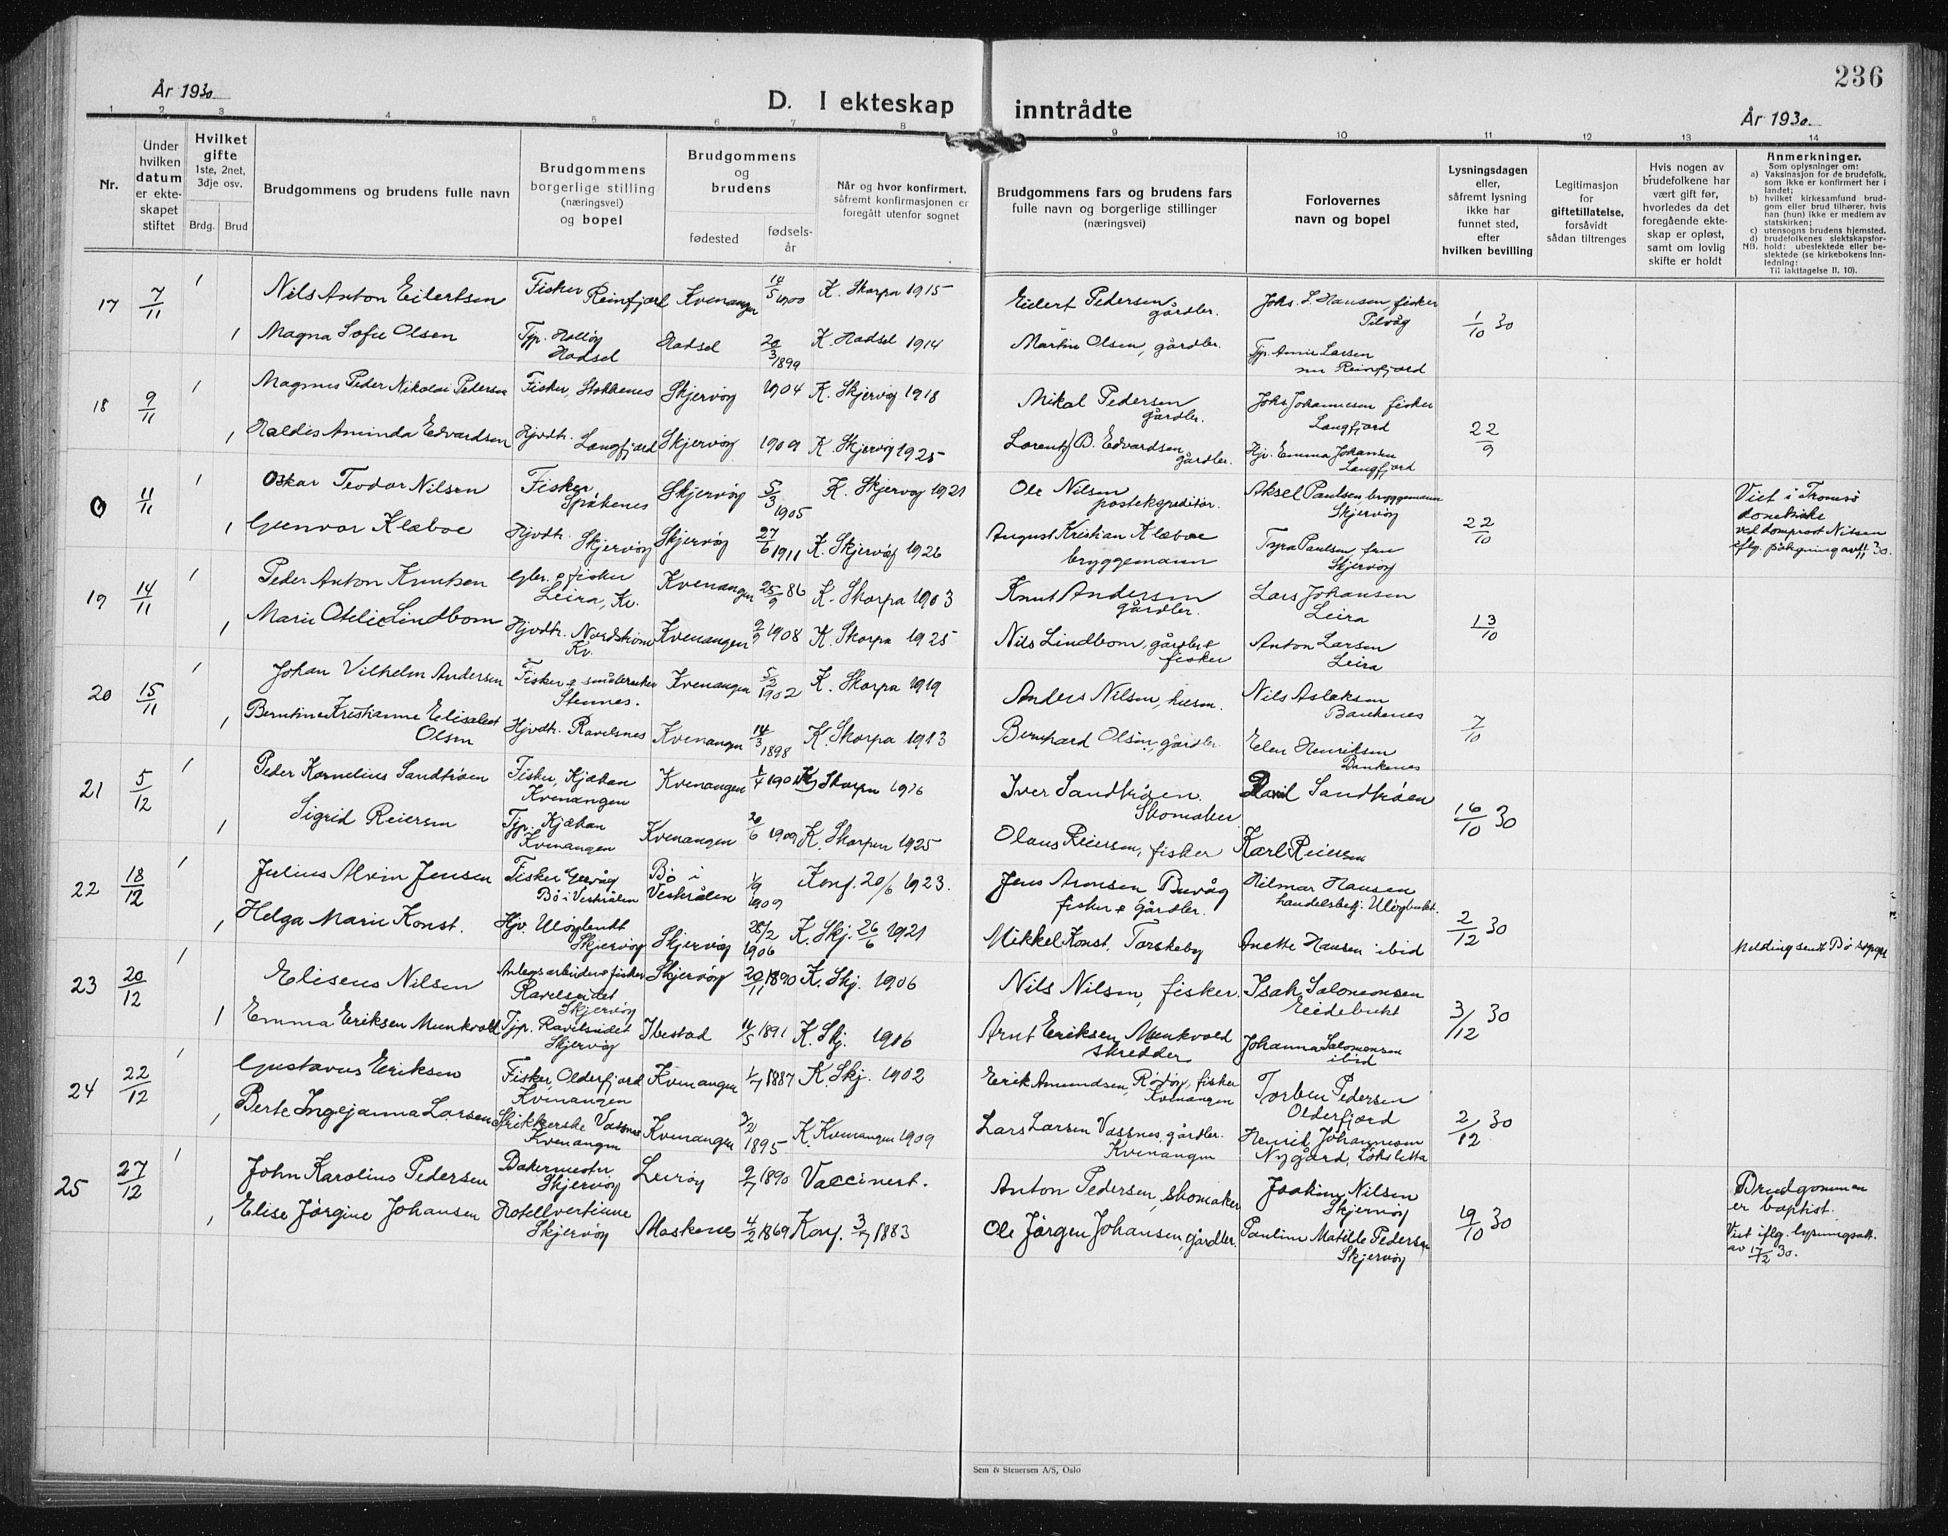 236
År 1930.
D. I ekteskap inntrådte
År 1930.
1 2 3 4 5 6 7 8 9 10 11 12 13 14
Nr.
Under hvilken datum er ekteskapet stiftet
Hvilket gifte 1ste, 2net, 3dje osv.
Brdg. Brud
Brudgommens og brudens fulle navn
Brudgommens borgerlige stilling (næringsvei) og bopel
Brudgommens og brudens
fødested
fødselsår
Når og hvor konfirmert, såfremt konfirmasjonen er foregått utenfor sognet
Brudgommens fars og brudens fars fulle navn og borgerlige stillinger (næringsvei)
Forlovernes navn og bopel
Lysningsdagen eller, såfremt lysning ikke har funnet sted, efter hvilken bevilling
Legitimasjon for giftetillatelse, forsåvidt sådan tiltrenges
Hvis nogen av brudefolkene har vært gift før, hvorledes da det foregående ekteskap er opløst, samt om lovlig skifte er holdt
Anmerkninger.
Som oplysninger om:
a) Vaksinasjon for de brudefolk, som ikke er konfirmert her i landet;
b) hvilket kirkesamfund brudgom eller brud tilhører, hvis han (hun) ikke er medlem av statskirken;
c) utensogns brudens hjemsted.
d) brudefolkenes slektskapsforhold: ubeslektede eller beslektede (se kirkebokens Innledning:
NB.
Til iakttagelse II, 10).
17 7/11 1 Nils Anton Eilertsen Fisker Reinfjord Kvenangen 14/5 1900 K. Skorpa 1915 Eilert Pedersen gårdbr. Johs. L. Hansen, fisker
1 Magna Sofie Olsen Tjp. Hadsel Hadsel 20/3 1899 K. Hadsel 1914 Martin Olsen, gårdbr. Tjp. Annie Larsen Reinfjord 1/10 30
18 9/11 1 Magnus Peder Nikolai Pedersen Fisker, Stokkenes Skjervøy 1904 K. Skjervøy 1918 Mikal Pedersen gårdbr. Johs Johannesen fisker Langfjord
1 Haldis Aminda Edvardsen Hjvdtr. Langfjord Skjervøy 1909 K. Skjervøy 1925 Lorentz B. Edvardsen gårdbr. Hjv. Emma Johansen Langfjord 22/9
0 11/11 1 Oskar Teodor Nilsen Fisker Spåkenes Skjervøy 5/3 1905 K. Skjervøy 1921 Ole Nilsen postekspeditør. Aksel Paulsen bryggemann Skjervøy
1 Gunvor Klæboe Hjvdtr. Skjervøy Skjervøy 27/6 1911 K. Skjervøy 1926 August Kristian Klæboe bryggemann Tyra Paulsen, fru Skjervøy 22/10
Viet i Tromsø
domkirke
ved domprost Nilsen
iflg. påtegning av 11/11 30.
19 14/11 1 Peder Anton Knutsen Gbr. & fisker Leira, Kv. Kvenangen 25/9 86 K. Skorpa 1903 Knut Andersen gårdbr. Lars Johansen Leira
1 Marie Otelie Lindbom Hjvdtr. Nordstrøm Kv. Kvenangen 9/9 1908 K. Skorpa 1925 Nils Lindbom, gårdbr & fisker Anton Larsen Leira 13/10
20 15/11 1 Johan Vilhelm Andersen Fisker & småbruker Stennes. Kvenangen 5/2 1902 K. Skorpa 1919 Anders Nilsen, husm. Nils Aslaksen Baukenes
1 Berntine Kristianne Elisabet Olsen Hjvdtr. Ravelsnes Kvenangen 14/3 1898 K. Skorpa 1913 Bernhard Olsen, gårdbr. Elen Henriksen 7/10
21 5/12 1 Peder Kornelius Sandtrøen Fisker, Kjækan Kvenangen Kvenangen K. Skorpa 1916 Iver Sandtrøen. Skomaker Sandtrøen
1 Sigrid Reiersen Tjp. Kjækan Kvenangen Kvenangen 20/6 1909 K. Skorpen 1925 Olaus Reiersen, fisker Karl Reiersen 16/10 30
22 18/12 1 Julius Alvin Jensen Fisker Bø i Vesterålen Bø i Vesterålen 1/9 1909 Konf. 20/6 1923. Jens Aronsen Buvåg fisker & gårdbr. Hilmar Hansen handelsbetj. Uløybukt.
1 Helga Marie Konst. Hjv. Uløybukt Skjervøy Skjervøy 28/2 1906 K. Skj. 26/6 1921 Mikkel Konst, Torskeby Anette Hansen ibid 2/12 30
Melding sendt Bø
23 20/12 1 Eliseus Nilsen Anlegsarbeider & fisker Ravelseidet Skjervøy Skjervøy 20/11 1890 K. Skj. 1906 Nils Nilsen, fisker. Isak Salomonsen Eidebukt
1 Emma Eriksen Munkvold Tjp. Ravelseidet Skjervøy Ibestad 11/5 1891 K. Skj. 1906 Arnt Eriksen Munkvold skredder Johanna Salomonsen ibid 3/12 30
24 22/12 1 Gustavus Eriksen Fisker, Olderfjord Kvenangen Kvenangen 1/7 1887 K. Skj. 1902 Erik Amundsen, Rødøy, fisker Kvenangen Torben Pedersen Olderfjord
1 Berte Ingejanna Larsen Strikkerske Vassnes Kvenangen Kvenangen 3/2 1895 K. Kvenangen 1909 Lars Larsen Vassnes, gårdbr. Kvenangen Henrik Johannesen Nygård, Løkslette 2/12 30
25 27/12 1 John Karolius Pedersen Bakermester Skjervøy Leirøy 2/7 1890 Vaccinert. Anton Pedersen, skomaker Joakim Nilsen Skjervøy
1 Elise Jörgine Johansen Hotellvertinne Skjervøy Moskenes 4/2 1869 Konf. 3/7 1883 Ole Jörgen Johansen, gårdbr. Pauline Matilde Pedersen Skjervøy 19/10 30
Brudgommen
er baptist.
Viet iflg. lysningsatt.
av 17/12 30.
Sem & Stenersen A/S, Oslo